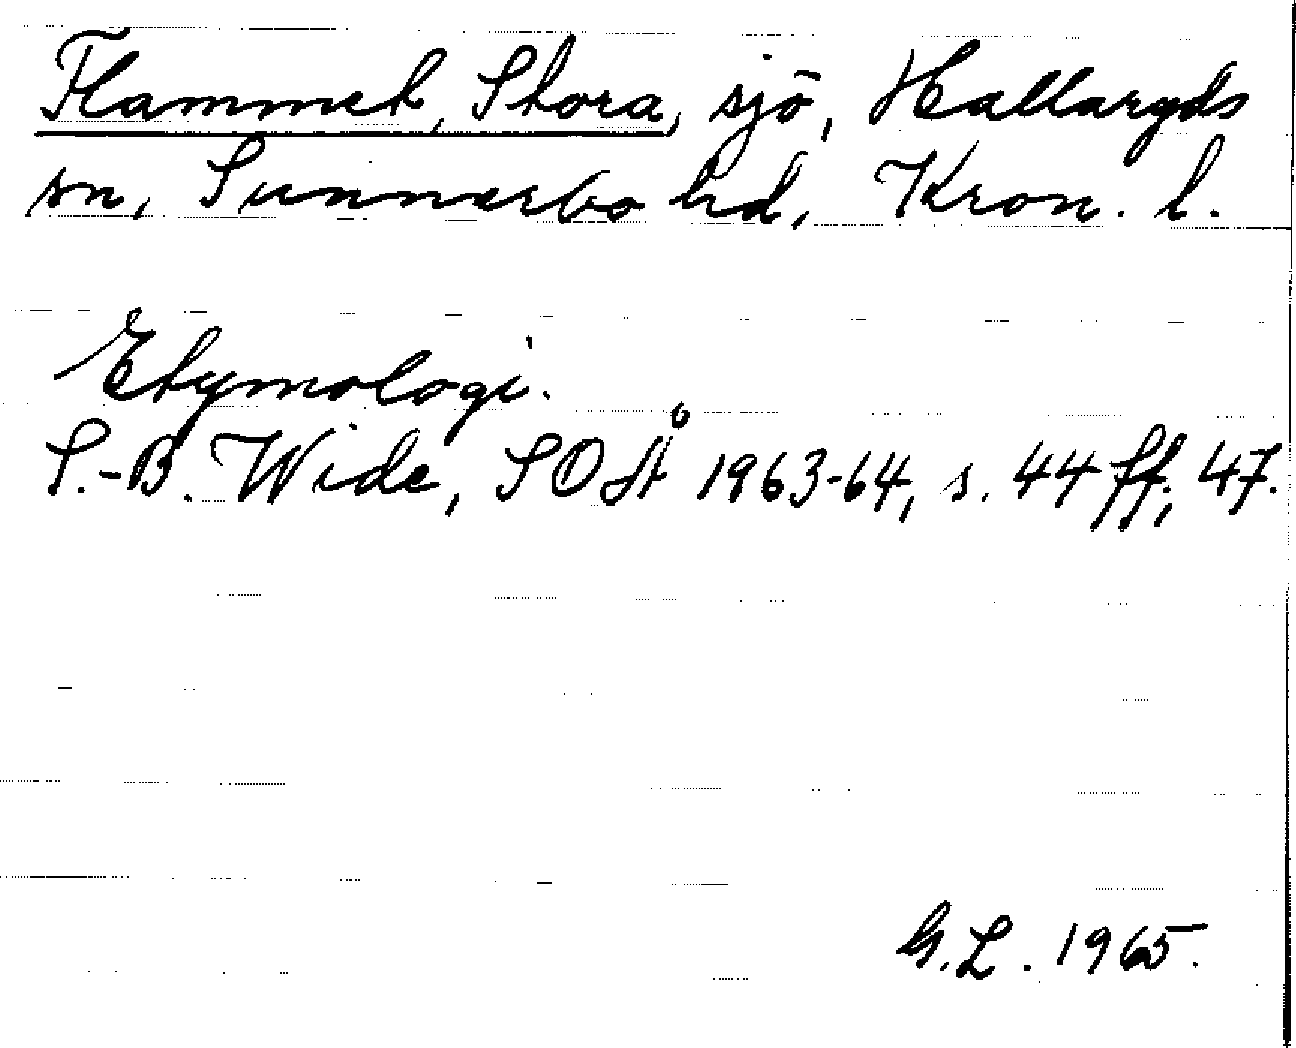 Flammet, Stora, sjö, Hallaryds
sn, Sunnerbo hd, Kron. l.
Etymologi.
S.-B. Wide, SOÅ 1963-64, s. 44 ff., 47.
G.L. 1965.